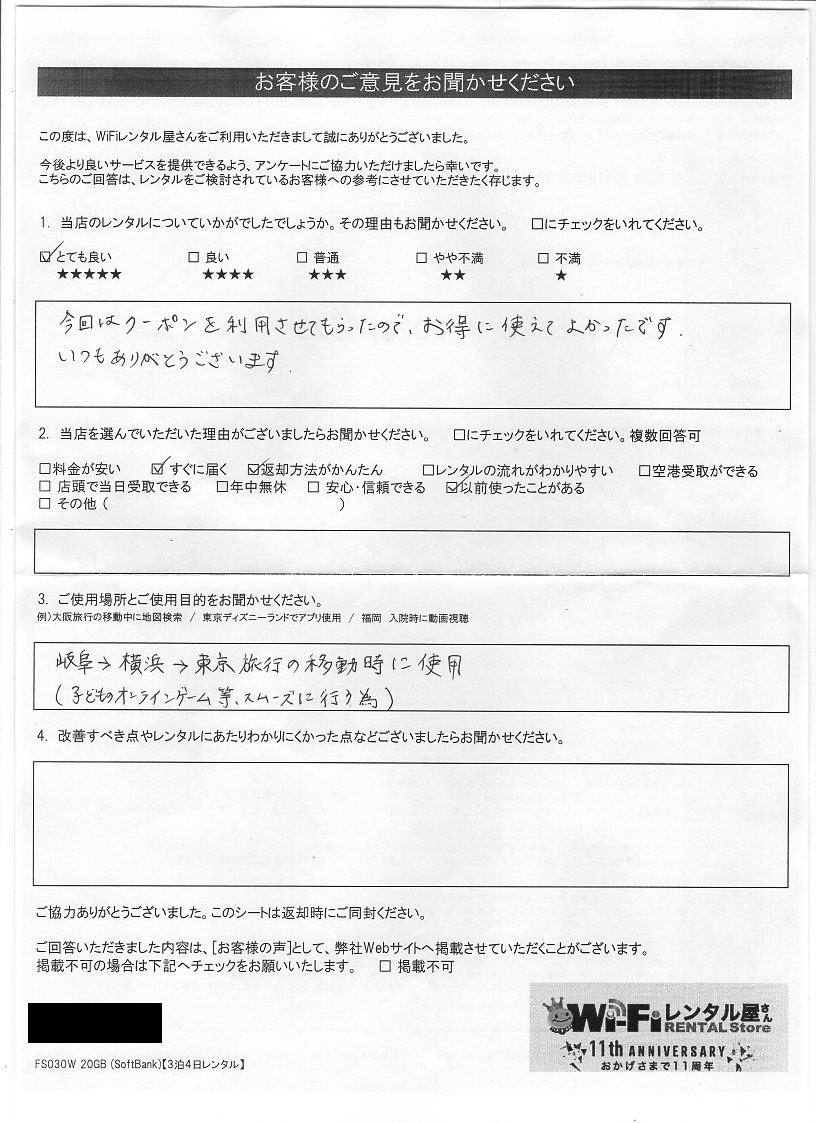 お客様のご意見をお聞かせください
この度は、WiFiレンタル屋さんをご利用いただきまして誠にありがとうございました。
今後より良いサービスを提供できるよう、アンケートにご協力いただけましたら幸いです。
こちらのご回答は、レンタルをご検討されているお客様への参考にさせていただきたく存じます。
1. 当店のレンタルについていかがでしたでしょうか。その理由もお聞かせください。 □にチェックをいれてください。
☑とても良い □ 良い □ 普通 □ やや不満 □ 不満
★★★★★ ★★★★ ★★★ ★★ ★
今回はクーポンを利用させてもらったので、お得に使えてよかったです.
いつもありがとうございます.
2. 当店を選んでいただいた理由がございましたらお聞かせください。 □にチェックをいれてください。複数回答可
□料金が安い ☑すぐに届く ☑返却方法がかんたん □レンタルの流れがわかりやすい □空港受取ができる
□ 店頭で当日受取できる □年中無休 □ 安心・信頼できる ☑以前使ったことがある
□ その他 ( )
3. ご使用場所とご使用目的をお聞かせください。
例)大阪旅行の移動中に地図検索 / 東京ディズニーランドでアプリ使用 / 福岡 入院時に動画視聴
岐阜→横浜→東京旅行の移動時に使用
(子どものオンラインゲーム等、スムーズに行う為)
4. 改善すべき点やレンタルにあたりわかりにくかった点などございましたらお聞かせください。
ご協力ありがとうございました。このシートは返却時にご同封ください。
ご回答いただきました内容は、[お客様の声]として、弊社Webサイトへ掲載させていただくことがございます。
掲載不可の場合は下記へチェックをお願いいたします。 □ 掲載不可
Wi-Fiレンタル屋さん
RENTAL Store
11th ANNIVERSARY
おかげさまで11周年
FS030W 20GB (SoftBank)【3泊4日レンタル】